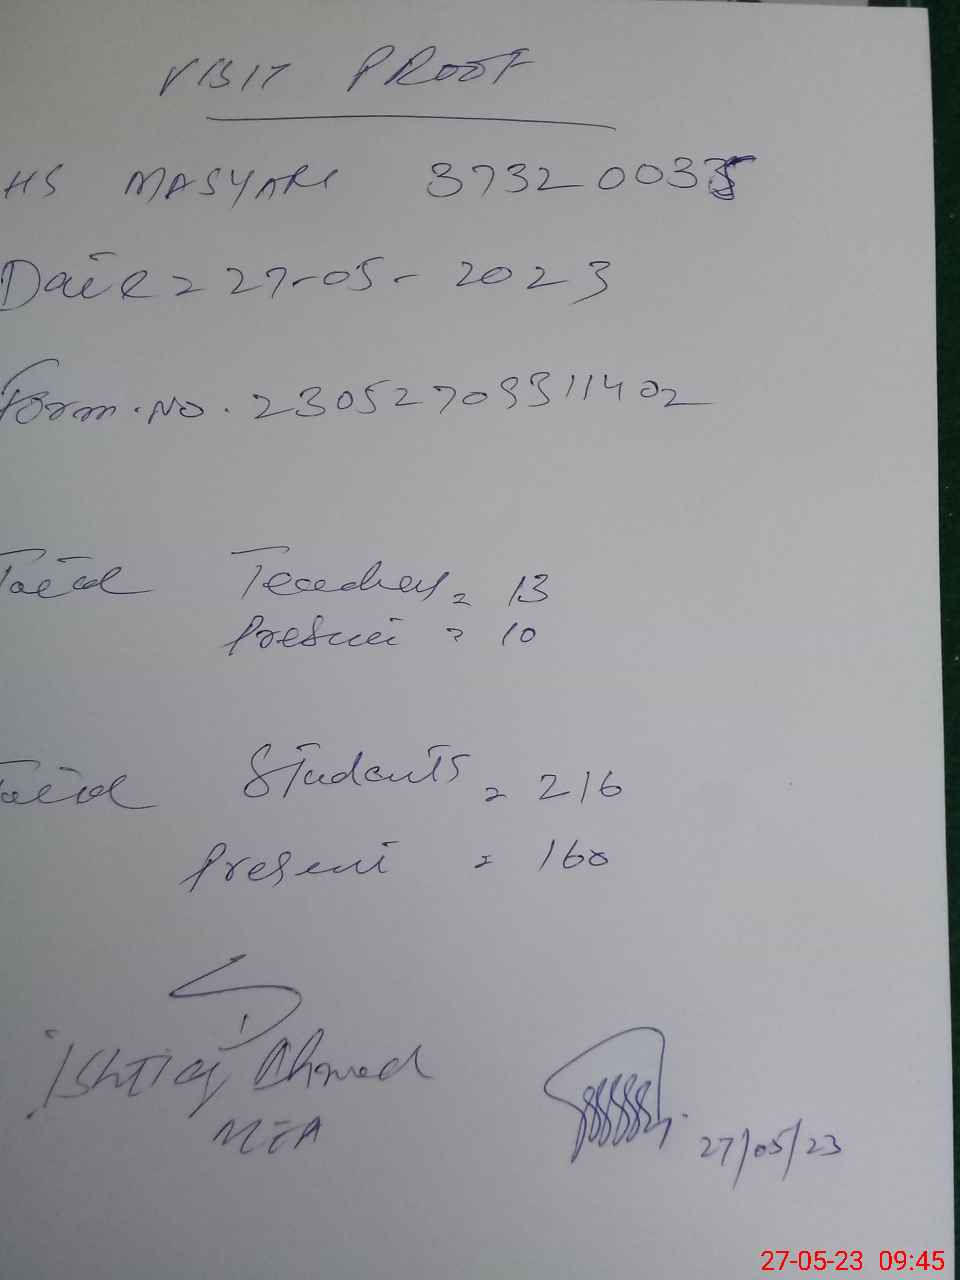 VISIT PROOF
HS MASYARI 37320035
Date = 27-05-2023
Form.No. 23052709311402
Total Teachers = 13
Present = 10
Total Students = 216
Present = 160
Ishtiaq Ahmed
MEA
27/05/23
27-05-23 09:45